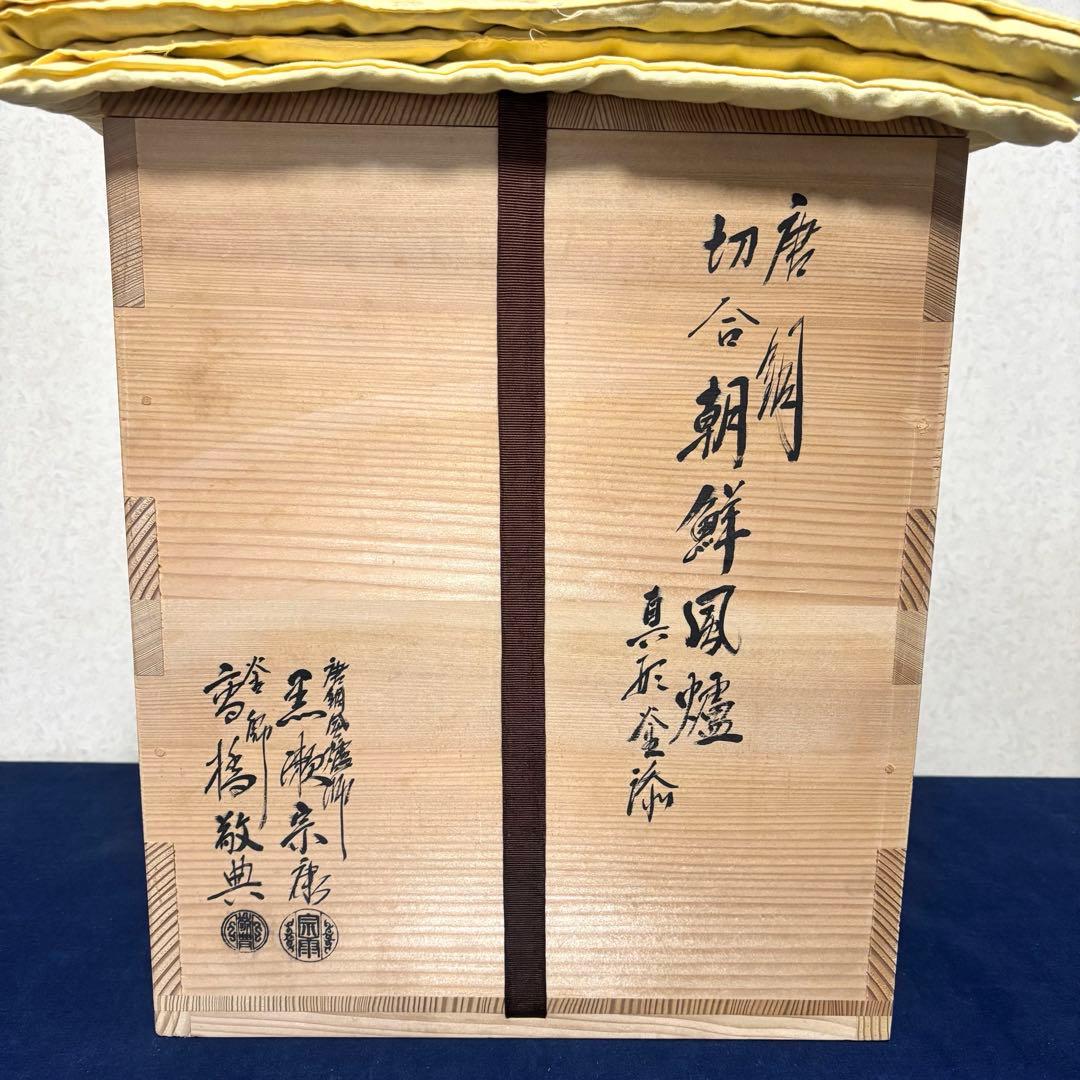 唐銅
切合朝鮮風爐
真形釜添
唐銅風爐師
黒瀬宗康
釜師
高橋敬典